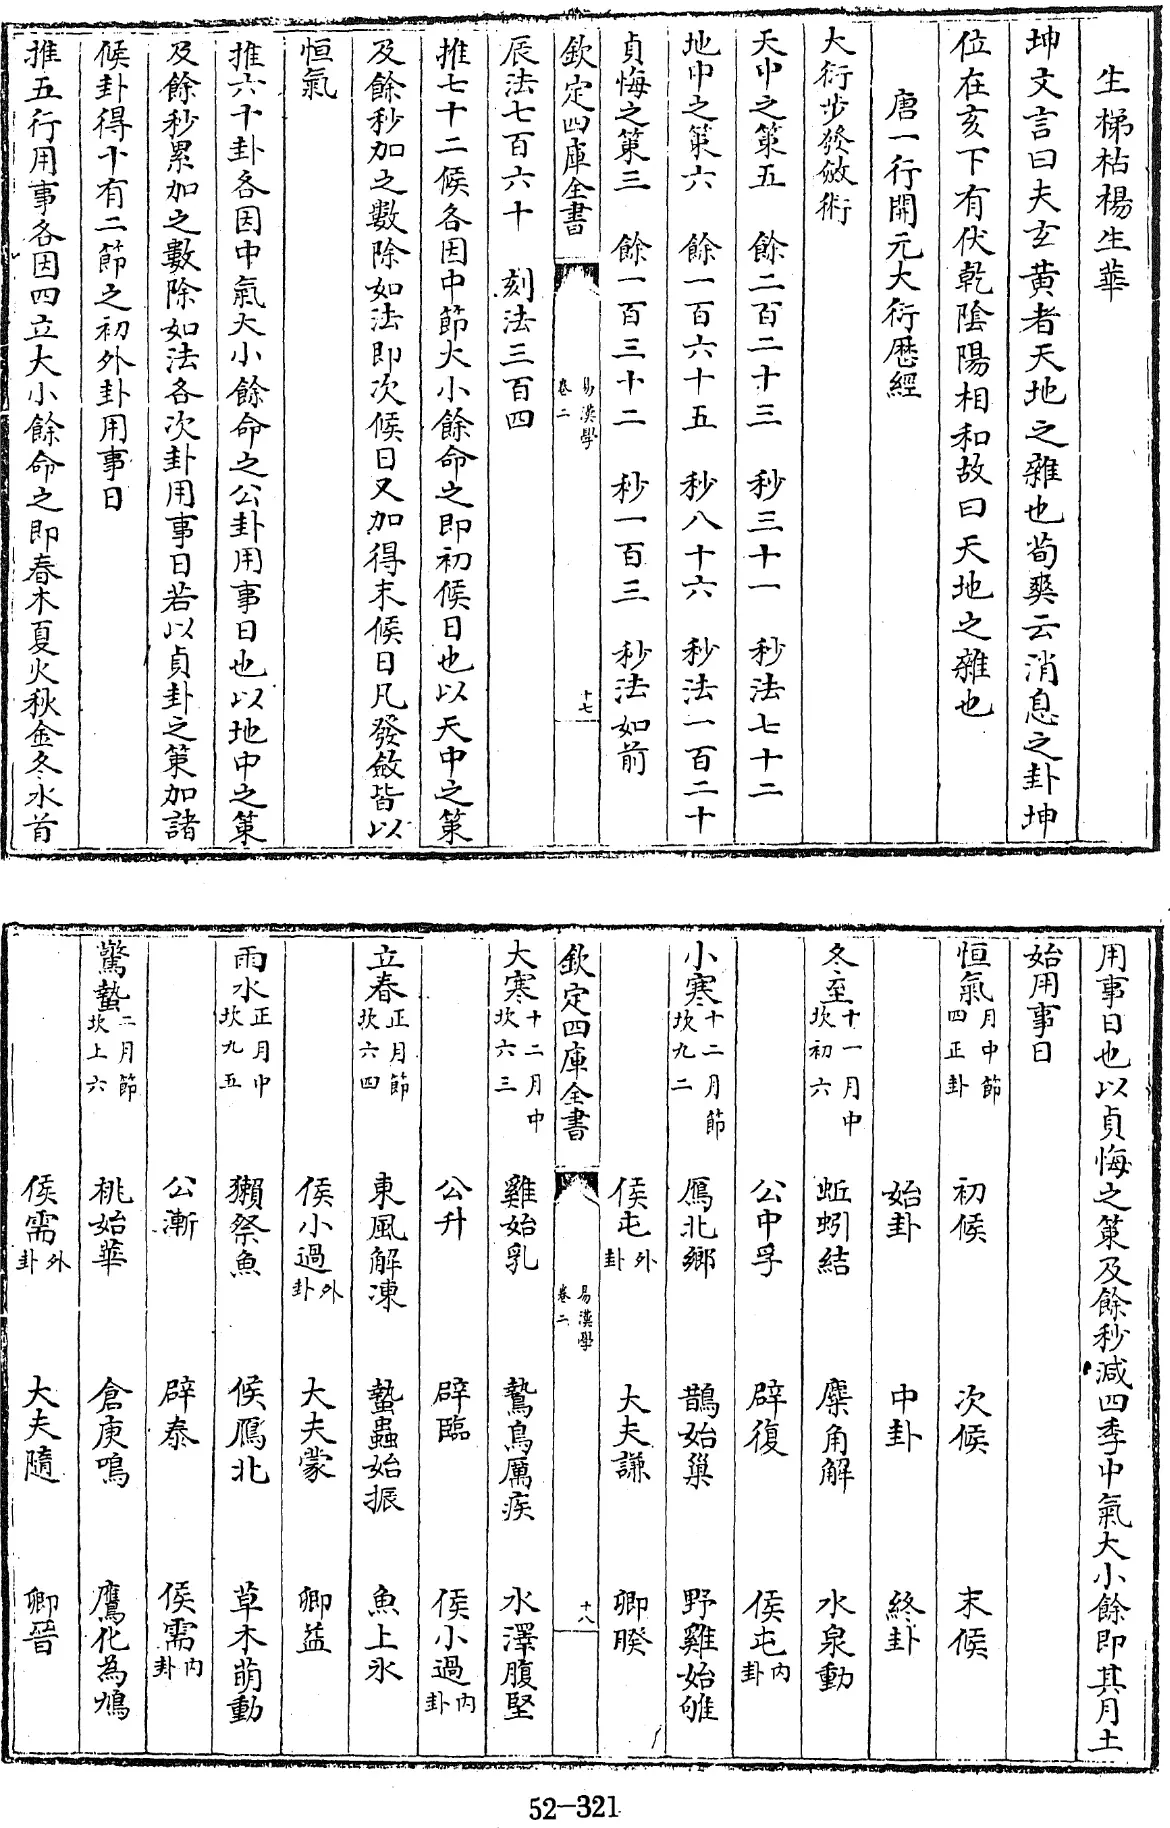 生梯枯楊生華
坤文言曰夫玄黃者天地之雜也荀爽云消息之卦坤
位在亥下有伏乾陰陽相和故曰天地之雜也
唐一行開元大衍歷經
大衍步發斂術
天中之策五 餘二百二十三 秒三十一 秒法七十二
地中之策六 餘一百六十五 秒八十六 秒法一百二十
貞悔之策三 餘一百三十二 秒一百三 秒法如前
欽定四庫全書 易漢學 卷二 十七
辰法七百六十 刻法三百四
推七十二候各因中節大小餘命之即初候日也以天中之策
及餘秒加之數除如法即次候日又加得末候日凡發斂皆以
恒氣
推六十卦各因中氣大小餘命之公卦用事日也以地中之策
及餘秒累加之數除如法各次卦用事日若以貞卦之策加諸
候卦得十有二節之初外卦用事日
推五行用事各因四立大小餘命之即春木夏火秋金冬水首
用事日也以貞悔之策及餘秒減四季中氣大小餘即其月土
始用事日
恒氣 月中節四正卦 初候 次候 末候
始卦 中卦 終卦
冬至 十一月中坎初六 蚯蚓結 麋角解 水泉動
公中孚 辟復 侯屯內卦
小寒 十二月節坎九二 鴈北鄉 鵲始巢 野雞始雊
侯屯外卦 大夫謙 卿睽
欽定四庫全書 易漢學 卷二 十八
大寒 十二月中坎六三 雞始乳 鷙鳥厲疾 水澤腹堅
公升 辟臨 侯小過內卦
立春 正月節坎六四 東風解凍 蟄蟲始振 魚上氷
侯小過外卦 大夫蒙 卿益
雨水 正月中坎九五 獺祭魚 候鴈北 草木萌動
公漸 辟泰 侯需內卦
驚蟄 二月節坎上六 桃始華 倉庚鳴 鷹化為鳩
侯需外卦 大夫隨 卿晉
52-321